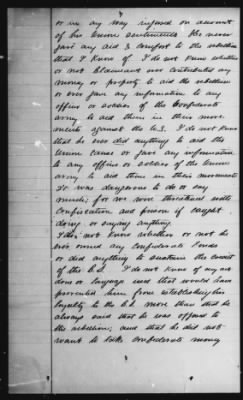 or in any way injured on account
of his Union sentiments. He never
gave any aid & comfort to the rebellion
that I know of. I do not know whether
or not Claimant ever contributed any
money or property to aid the rebellion
or ever gave any information to any
officer or soldier of the Confederate
army to aid them in their move
ments against the U.S. I do not know
that he ever did anything to aid the
Union cause or gave any information
to any officer or soldier of the Union
army to aid them in their movements
It was dangerous to do or say
much; for we were threatened with
Confiscation and prison if caught
doing or saying anything.
I do not know whether or not he
ever owned any Confederate bonds
or did anything to sustain the credit
of the C.S. I do not know of any act
done or language used that would have
prevented him from establishing his
loyalty to the C.S. more than that he
always said that he was opposed to
the rebellion; and that he did not
want to take Confederate money